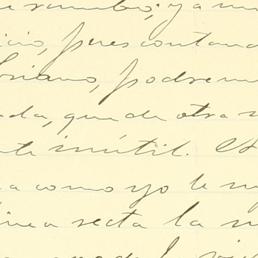 rumbo; ya m
icio, pues contand
oriano, podrem
ada, que de otra
te inútil.
a como yo le
línea recta la